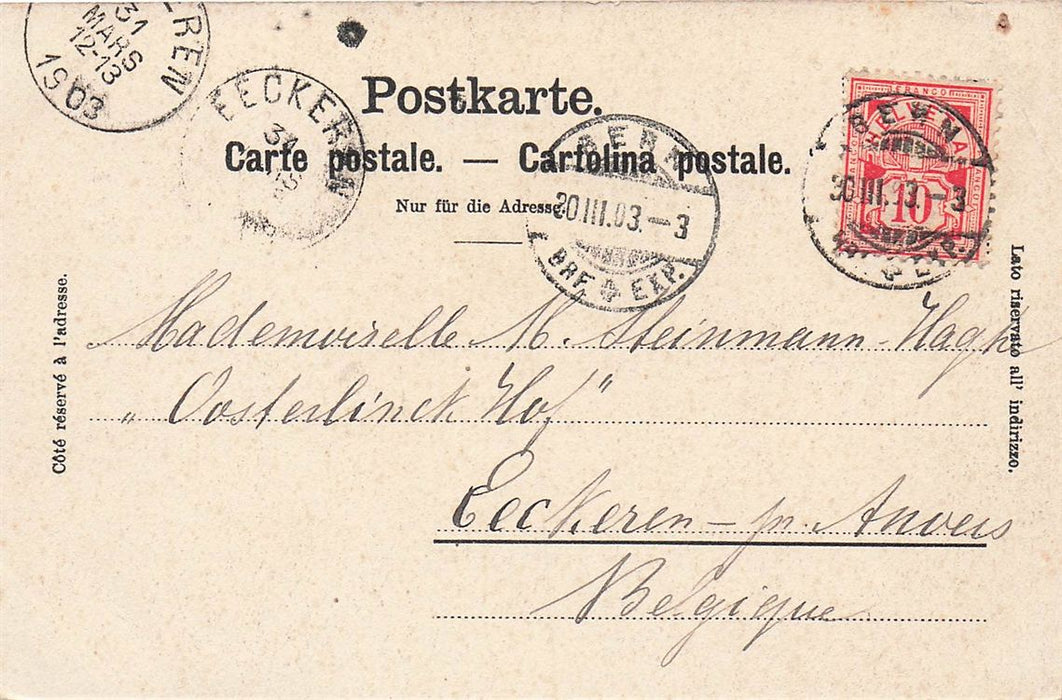 31
MARS
12-13
1903
EECKEREN
31
Postkarte.
Carte postale. — Cartolina postale.
Nur für die Adresse.
BERN
30 III.03.–3
BRF. EXP.
BERN
30 III.03.–3
EXP.
FRANCO
HELVETIA
10
Côté réservé à l'adresse.
Lato riservato all' indirizzo.
Mademoiselle M. Steinmann-Haghe
„Oosterlinck Hof"
Eeckeren – pr. Anvers
Belgique